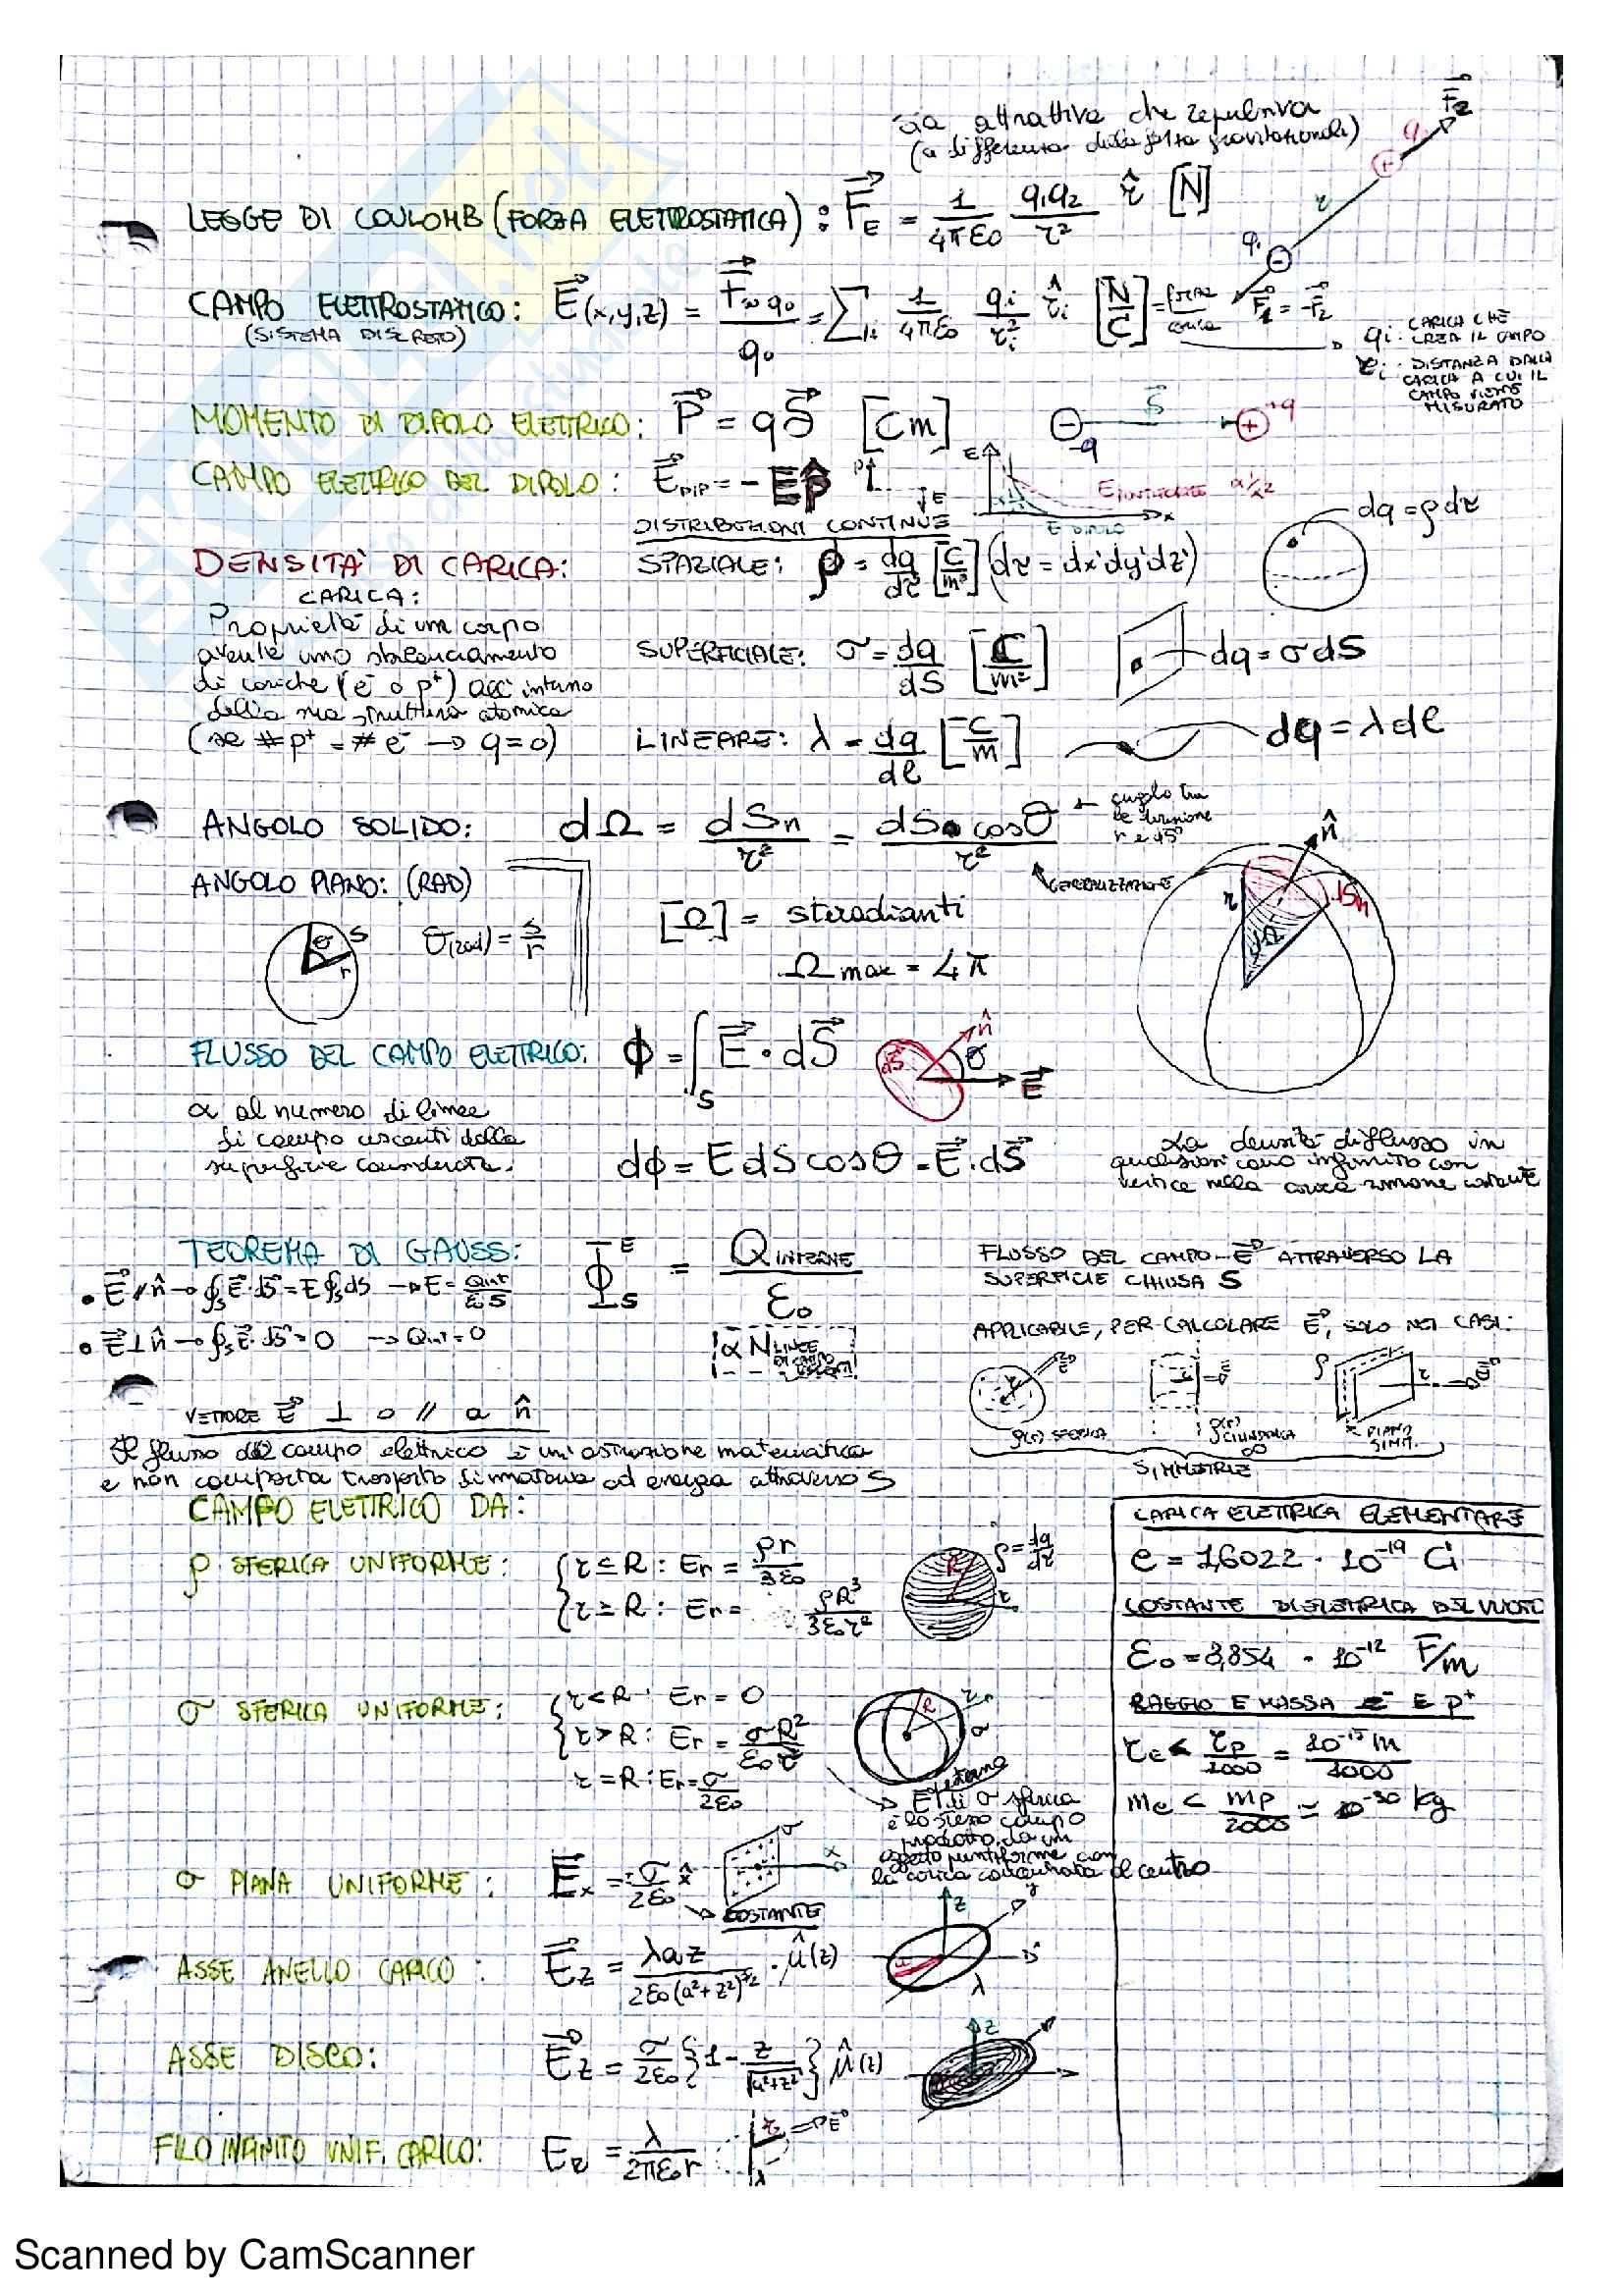 sia attrattiva che repulsiva
(a differenza della forza gravitazionale)
LEGGE DI COULOMB (FORZA ELETTROSTATICA): F⃗_E = 1/(4πε₀) q₁q₂/r² r̂ [N]
CAMPO ELETTROSTATICO: E⃗(x,y,z) = F⃗/q₀ = Σᵢ 1/(4πε₀) qᵢ/rᵢ² r̂ᵢ [N/C] = forza/carica
F⃗₁ = -F⃗₂
(SISTEMA DISCRETO)
qᵢ: CARICA CHE
CREA IL CAMPO
rᵢ: DISTANZA DALLA
CARICA A CUI IL
CAMPO VIENE
MISURATO
MOMENTO DI DIPOLO ELETTRICO: P⃗ = qδ⃗ [Cm]
-q +q
CAMPO ELETTRICO DEL DIPOLO: E⃗_DIP = -E p̂
E DIPOLO
DISTRIBUZIONI CONTINUE
DENSITA' DI CARICA: SPAZIALE: ρ = dq/dτ [C/m³] (dτ = dx'dy'dz')
dq = ρdτ
CARICA:
Proprietà di un corpo
avente uno sbilanciamento
di cariche (e⁻ o p⁺) all'interno
della sua struttura atomica
(se #p⁺ = #e⁻ → q=0)
SUPERFICIALE: σ = dq/dS [C/m²]
dq = σdS
LINEARE: λ = dq/dℓ [C/m]
dq = λdℓ
ANGOLO SOLIDO: dΩ = dSₙ/r² = dS cosθ/r²
← angolo tra
le direzione
r e dS
GENERALIZZAZIONE
ANGOLO PIANO: (RAD)
θ(rad) = s/r
[Ω] = steradianti
Ω max = 4π
n̂ r dSₙ dΩ
FLUSSO DEL CAMPO ELETTRICO: ϕ = ∫_S E⃗ · dS⃗
dS⃗ n̂ θ E⃗
∝ al numero di linee
di campo uscenti dalla
superficie considerata.
dϕ = E dS cosθ = E⃗ · dS⃗
La densità di flusso in
qualsiasi cono infinito con
vertice nella carica rimane costante
TEOREMA DI GAUSS: Φ_S^E = Q INTERNE/ε₀
• E⃗ // n̂ → ∮_S E⃗·dS⃗ = E∮_S dS → E = Qint/(εS)
• E⃗ ⊥ n̂ → ∮_S E⃗·dS⃗ = 0 → Qint = 0
∝ N LINEE
DI CAMPO
USCENTI
FLUSSO DEL CAMPO E⃗ ATTRAVERSO LA
SUPERFICIE CHIUSA S
APPLICABILE, PER CALCOLARE E⃗, SOLO NEI CASI:
ρ(r) SFERICA
ρ(r) CILINDRICA ∞
PIANO SIMM.
SIMMETRIE
VETTORE E⃗ ⊥ o // a n̂
Il flusso del campo elettrico è un'astrazione matematica
e non comporta trasporto di materia od energia attraverso S
CAMPO ELETTRICO DA:
ρ SFERICA UNIFORME: { r ≤ R : Er = ρr/3ε₀
{ r ≥ R : Er = ρR³/3ε₀r²
ρ = dq/dτ
σ SFERICA UNIFORME: { r < R : Er = 0
{ r > R : Er = σR²/ε₀r²
r = R : Er = σ/2ε₀
E⃗ esterno di σ sferica
è lo stesso campo
prodotto da un
oggetto puntiforme con
la carica concentrata al centro
σ PIANA UNIFORME: E⃗ₓ = σ/2ε₀ x̂
→ COSTANTE
ASSE ANELLO CARICO: E⃗_z = λaz/2ε₀(a²+z²)^3/2 · û(z)
ASSE DISCO: E⃗_z = σ/2ε₀ {1 - z/√(a²+z²)} û(z)
FILO INFINITO UNIF. CARICO: E_R = λ/2πε₀r
CARICA ELETTRICA ELEMENTARE
e = 1,6022 · 10⁻¹⁹ C
COSTANTE DIELETTRICA DEL VUOTO
ε₀ = 8,854 · 10⁻¹² F/m
RAGGIO E MASSA e⁻ E p⁺
r_e < r_p/1000 = 10⁻¹⁵ m/1000
m_e < m_p/2000 ≃ 10⁻³⁰ kg
Scanned by CamScanner